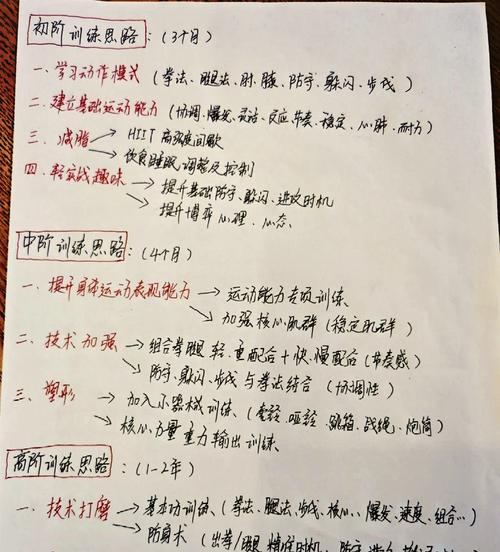 初阶训练思路：(3个月)
一、学习动作模式（拳法、腿法、肘、膝、防守、躲闪、步伐）
二、建立基础运动能力（协调、爆发、灵活、反应、节奏、稳定、心肺、耐力）
三、减脂 → HIIT 高强度间歇
→ 饮食睡眠调整及控制
四、轻实战趣味 → 提升基础防守、躲闪、进攻时机
→ 提升搏弈心理、心态、
中阶训练思路：(4个月)
一、提升身体运动表现能力 → 运动能力专项训练
→ 加强核心肌群（稳定肌群）
二、技术加强 → 组合拳腿轻、重配合+快、慢配合（节奏感）
→ 防守、躲闪、步伐与拳法结合（协调性）
三、塑形 → 加入小器械训练、（壶铃、哑铃、跳箱、战绳、炮筒）
→ 核心力量重力输出训练、
高阶训练思路：(1-2年)
一、技术打磨 → 基本功训练、（拳法、腿法、步伐、核心、爆发、速度、组合…）
→ 防身术（出拳/腿 精准时机、防守